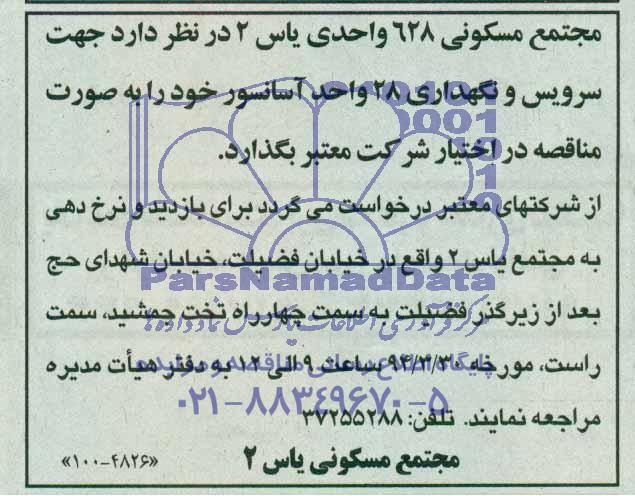 مجتمع مسکونی ۶۲۸ واحدی یاس ۲ در نظر دارد جهت
سرویس و نگهداری ۲۸ واحد آسانسور خود را به صورت
مناقصه در اختیار شرکت معتبر بگذارد.
از شرکتهای معتبر درخواست می گردد برای بازدید و نرخ دهی
به مجتمع یاس ۲ واقع در خیابان فضیلت، خیابان شهدای حج
ParsNamadData
بعد از زیرگذر فضیلت به سمت چهارراه تخت جمشید، سمت
مرکز فرآوری اطلاعات پارس نماد داده ها
راست، مورخه ۹۴/۳/۳۰ ساعت ۹ الی ۱۲ به دفتر هیأت مدیره
پایگاه اطلاع رسانی مناقصه و مزایده
۰۲۱-۸۸۳۴۹۶۷۰-۵
مراجعه نمایند. تلفن: ۳۷۲۵۵۲۸۸
مجتمع مسکونی یاس ۲
«۱۰۰-۴۸۲۶»